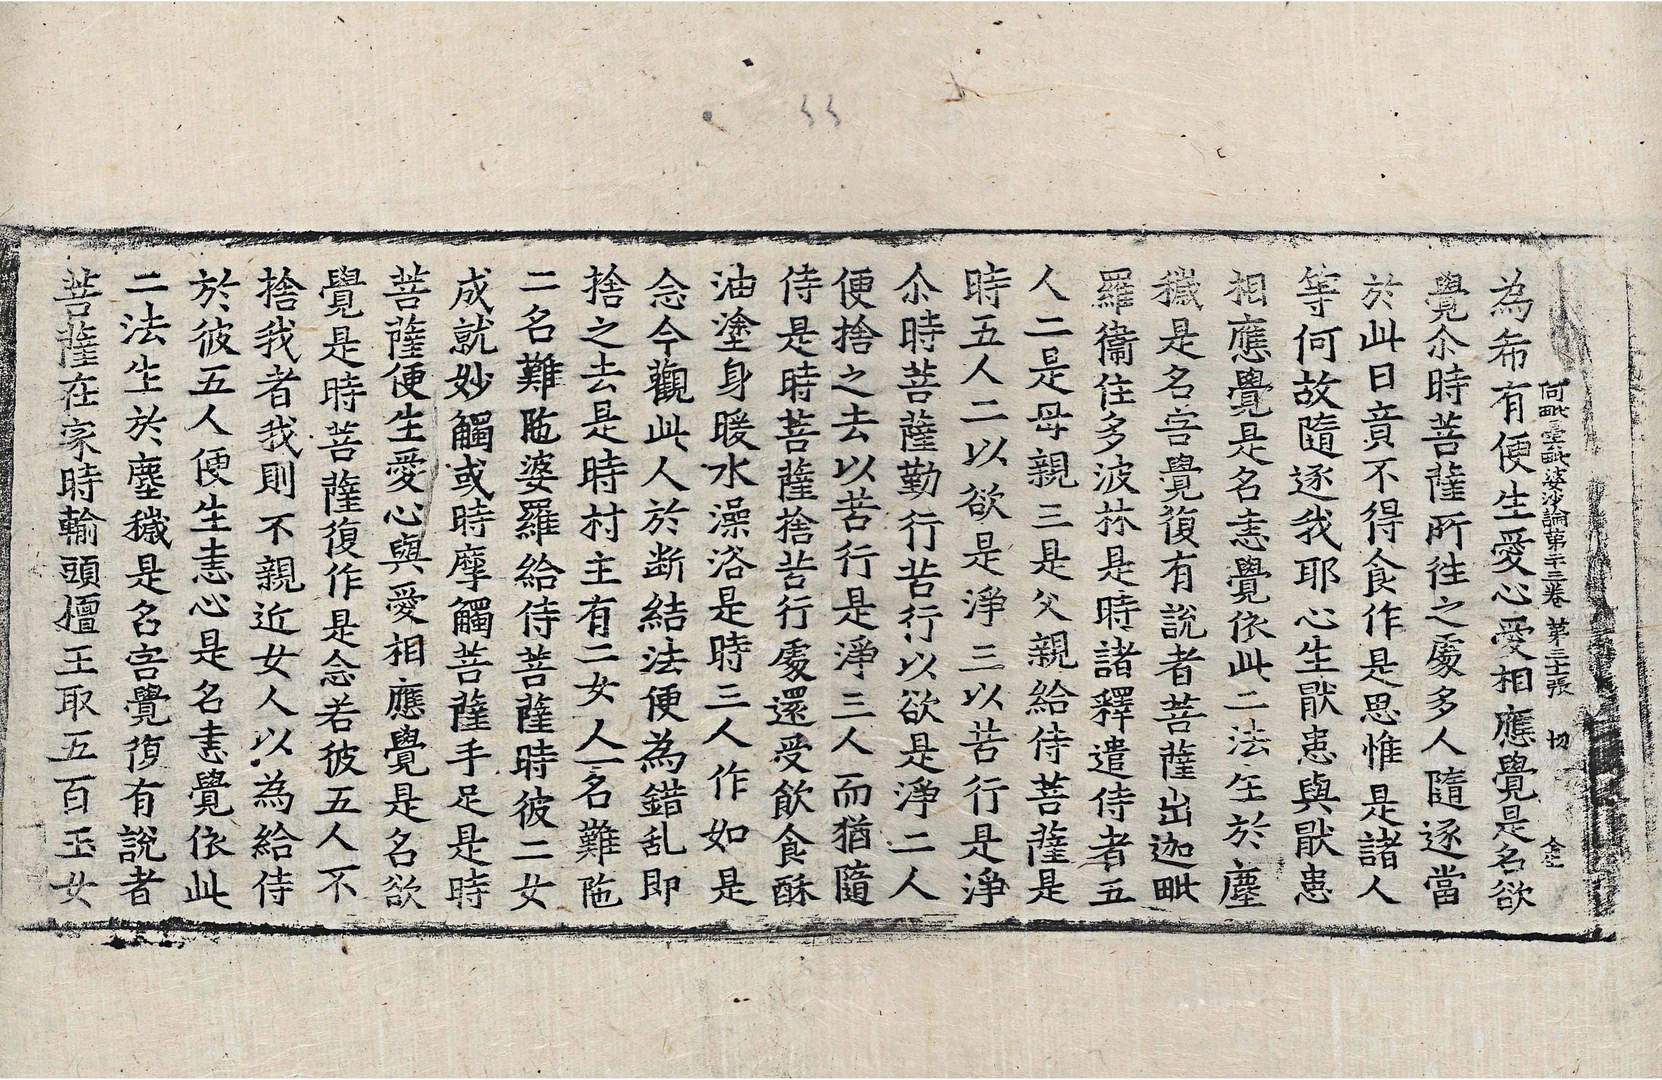 阿毗曇毗婆沙論第二十三卷 第三十張 切
為希有便生愛心愛相應覺是名欲
覺尒時菩薩所往之處多人隨逐當
於此日竟不得食作是思惟是諸人
等何故隨逐我耶心生猒恚與猒恚
相應覺是名恚覺依此二法生於塵
穢是名害覺復有說者菩薩出迦毗
羅衞住多波林是時諸釋遣侍者五
人二是母親三是父親給侍菩薩是
時五人二以欲是淨三以苦行是淨
尒時菩薩勤行苦行以欲是淨二人
便捨之去以苦行是淨三人而猶隨
侍是時菩薩捨苦行處還受飲食酥
油塗身暖水澡浴是時三人作如是
念今觀此人於断結法便為錯乱即
捨之去是時村主有二女人一名難陁
二名難陁婆羅給侍菩薩時彼二女
成就妙觸或時摩觸菩薩手足是時
菩薩便生愛心與愛相應覺是名欲
覺是時菩薩復作是念若彼五人不
捨我者我則不親近女人以為給侍
於彼五人便生恚心是名恚覺依此
二法生於塵穢是名害覺復有說者
菩薩在家時輸頭檀王取五百玉女